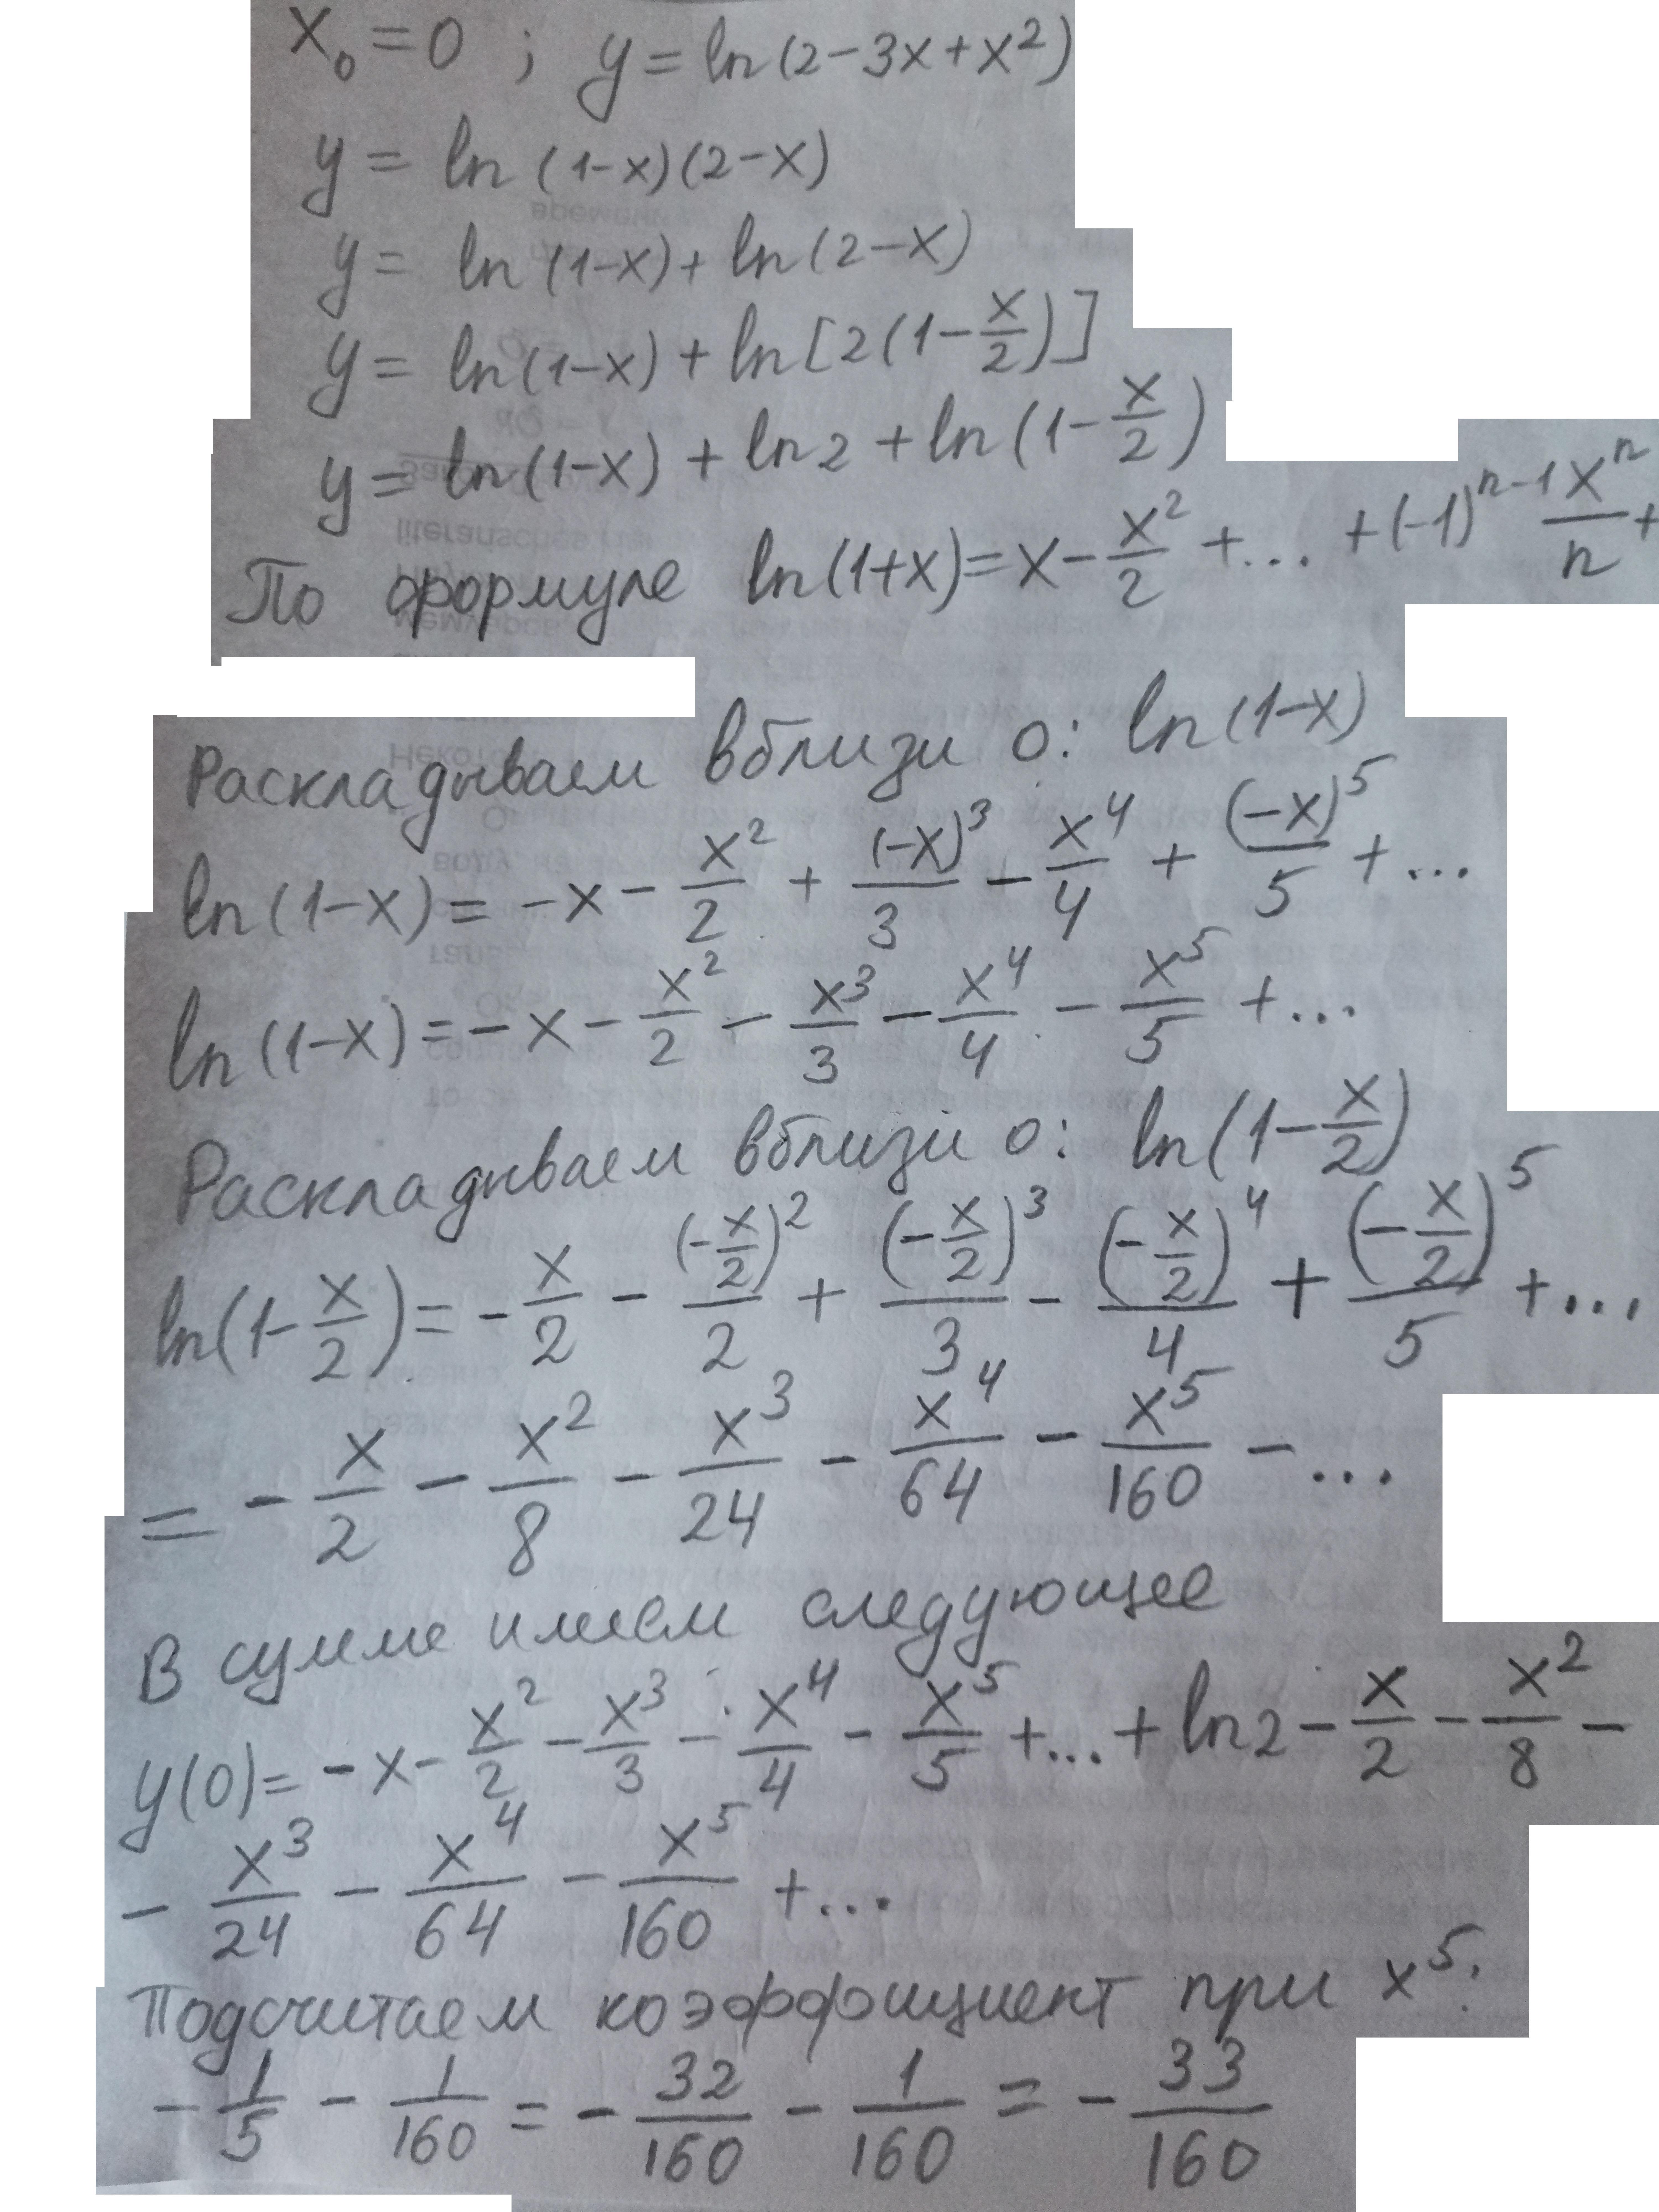 x₀ = 0 ; y = ln(2-3x+x²)
y = ln (1-x)(2-x)
y = ln (1-x) + ln(2-x)
y = ln(1-x) + ln[2(1-x/2)]
y = ln(1-x) + ln2 + ln(1-x/2)
По формуле ln(1+x)=x-x²/2+...+(-1)ⁿ⁻¹xⁿ/n+
Раскладываем вблизи 0: ln(1-x)
ln(1-x)= -x - x²/2 + (-x)³/3 - x⁴/4 + (-x)⁵/5 +...
ln(1-x)= -x - x²/2 - x³/3 - x⁴/4 - x⁵/5 +...
Раскладываем вблизи 0: ln(1-x/2)
ln(1-x/2)= -x/2 - (-x/2)²/2 + (-x/2)³/3 - (-x/2)⁴/4 + (-x/2)⁵/5 +...
= -x/2 - x²/8 - x³/24 - x⁴/64 - x⁵/160 -...
В сумме имеем следующее
y(0)= -x - x²/2 - x³/3 - x⁴/4 - x⁵/5 +...+ ln2 - x/2 - x²/8 -
- x³/24 - x⁴/64 - x⁵/160 +...
Подсчитаем коэффициент при x⁵:
-1/5 - 1/160 = -32/160 - 1/160 = -33/160